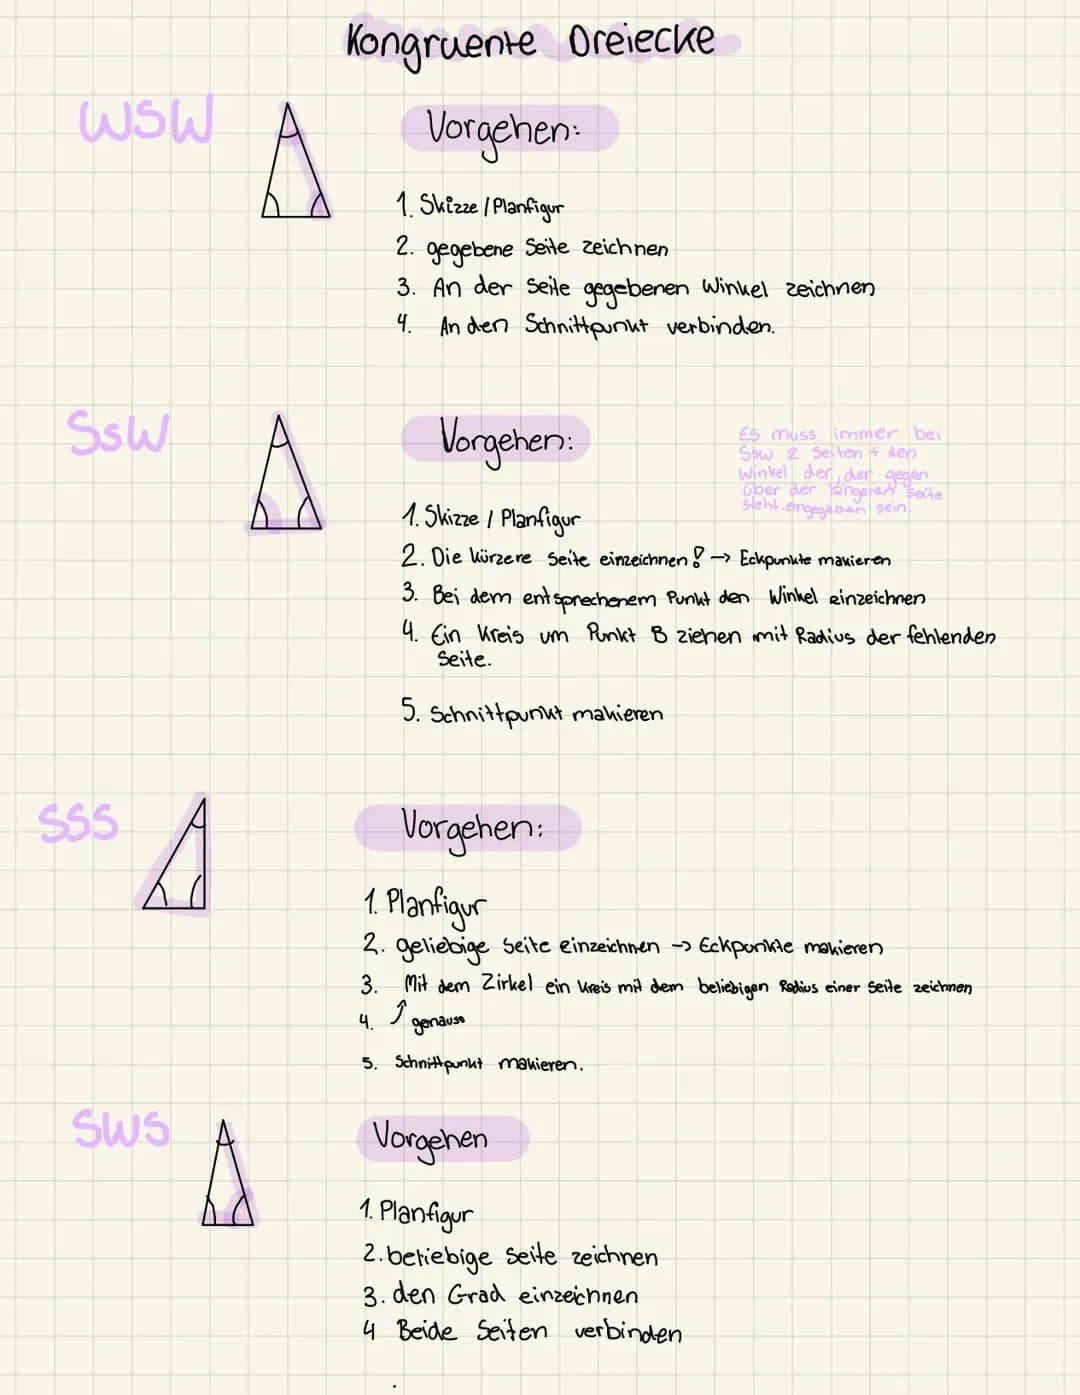 Kongruente Dreiecke
WSW
Vorgehen:
1. Skizze / Planfigur
2. gegebene Seite zeichnen
3. An der Seite gegebenen Winkel zeichnen
4. An den Schnittpunkt verbinden.
SsW
Vorgehen:
Es muss immer bei
Ssw 2 Seiten + den
Winkel der, der gegen
über der längeren Seite
steht angegeben sein.
1. Skizze / Planfigur
2. Die kürzere Seite einzeichnen! → Eckpunkte makieren
3. Bei dem entsprechenem Punkt den Winkel einzeichnen
4. Ein Kreis um Punkt B ziehen mit Radius der fehlenden
Seite.
5. Schnittpunkt makieren
SSS
Vorgehen:
1. Planfigur
2. geliebige Seite einzeichnen → Eckpunkte makieren
3. Mit dem Zirkel ein Kreis mit dem beliebigen Radius einer Seite zeichnen
4. ↑ genauso
5. Schnittpunkt makieren.
SWS
Vorgehen
1. Planfigur
2. beliebige Seite zeichnen
3. den Grad einzeichnen
4 Beide Seiten verbinden